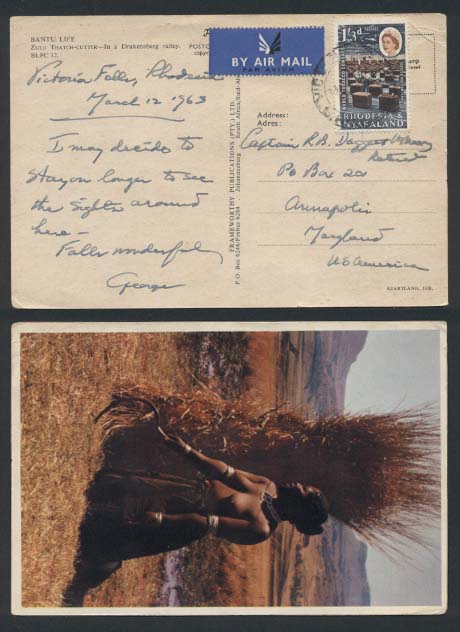 BANTU LIFE
ZULU THATCH-CUTTER—In a Drakensberg valley.
BLPC 12.
BY AIR MAIL
PAR AVION
1/3d
RHODESIA &
NYASALAND
Victoria Falls, Rhodesia
March 12 1963
I may decide to
stay on longer to see
the sights around
here —
Falls wonderful
George
FRAMEWORTHY PUBLICATIONS (PTY.) LTD.
Address:
Adres:
Captain R.B. Daggett
Retired
PO Box 201
Annapolis
Maryland
US America
KEARTLAND, JHB.